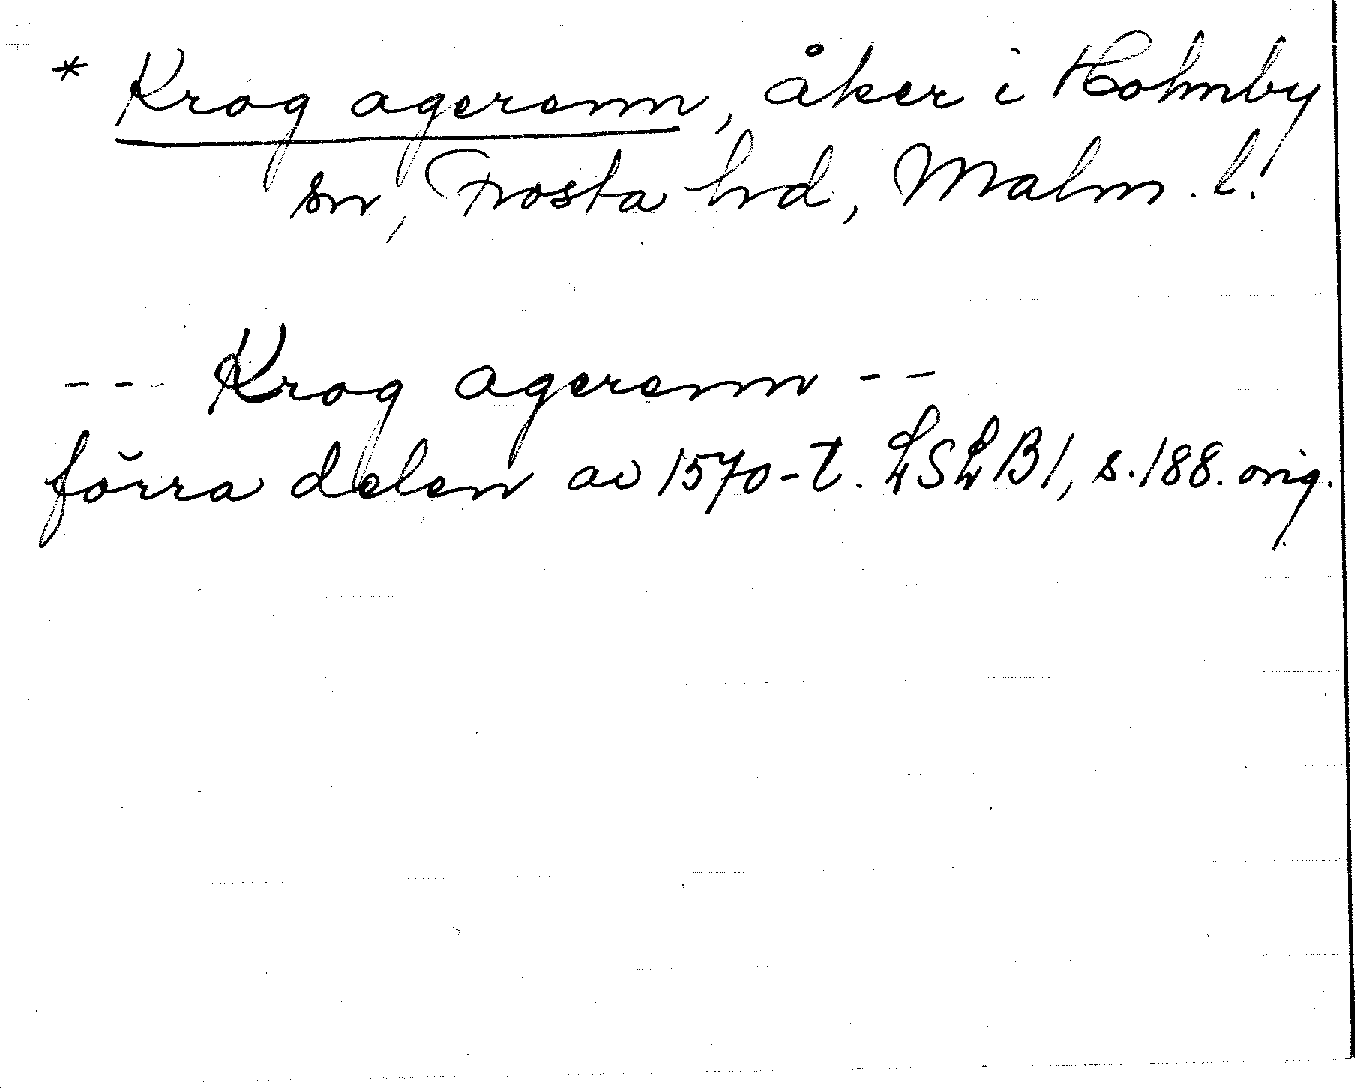 * Krog agerenn, åker i Holmby
sn, Frosta hrd, Malm. l.
--- Krog agerenn --
förra delen av 1570-t. LSLB1, s. 188. orig.